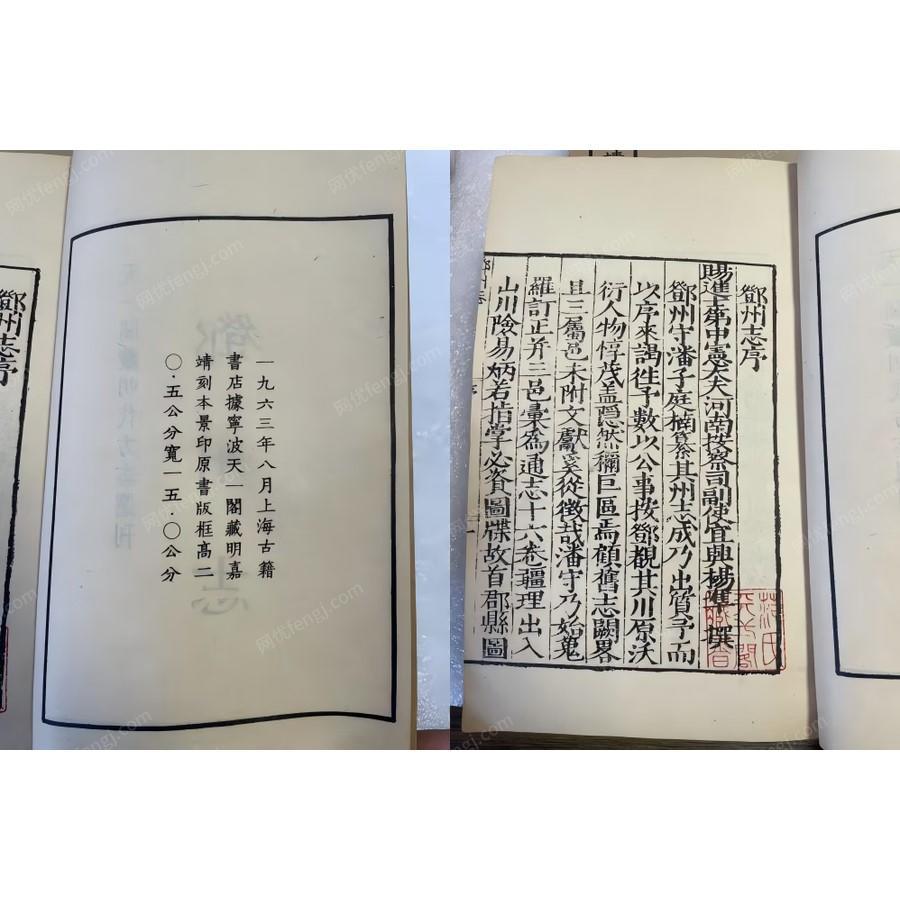 鄧州志序
一九六三年八月上海古籍
書店據寧波天一閣藏明嘉
靖刻本景印原書版框高二
〇·五公分寬一五·〇公分
鄧州志序
賜進士第中憲大夫河南按察司副使宜興楊準撰
鄧州守潘子庭楠纂其州志成乃出質予而
以序來謁徃予數以公事按鄧觀其川原沃
衍人物惇茂盖隠然稱巨區焉顧舊志闕畧
且三屬邑未附文獻奚從徵哉潘守乃始蒐
羅訂正并三邑彙為通志十六卷疆理出入
山川險易炳若指掌必資圖牒故首郡縣圖
范氏
天一閣
藏書